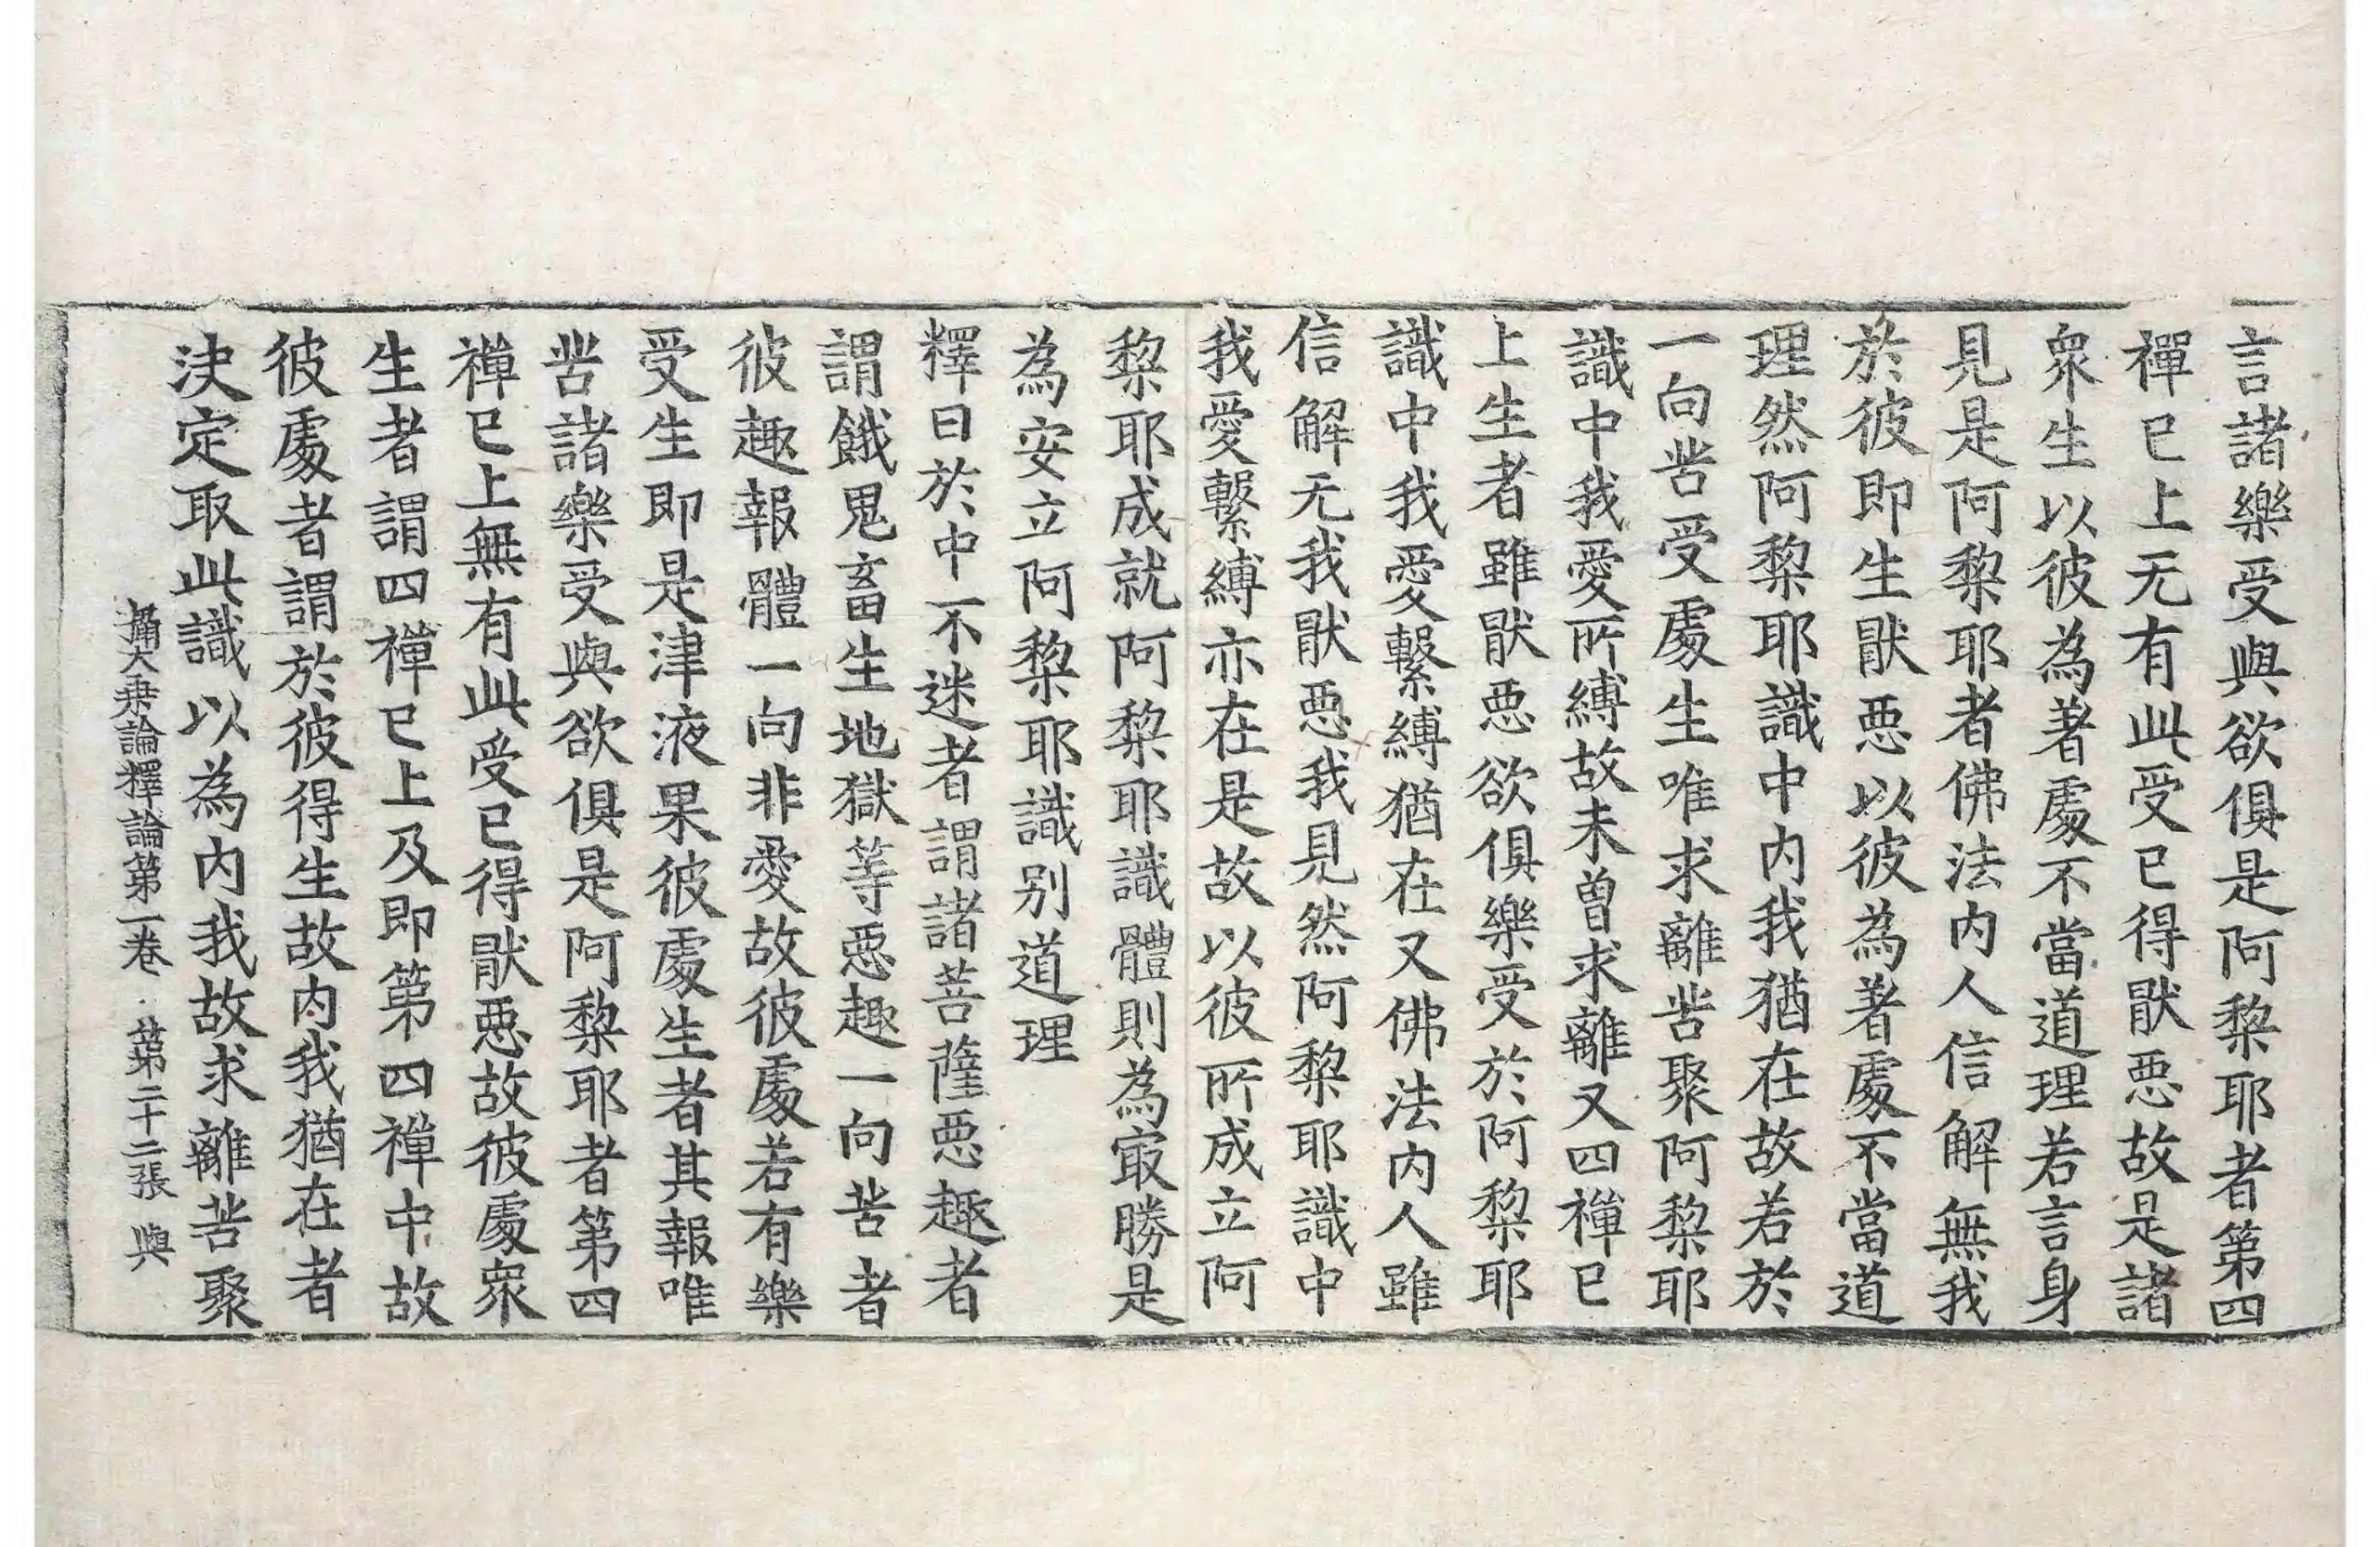 言諸樂受與欲俱是阿黎耶者第四
禪已上无有此受已得猒惡故是諸
衆生以彼為著處不當道理若言身
見是阿黎耶者佛法内人信解無我
於彼即生猒惡以彼為著處不當道
理然阿黎耶識中内我猶在故若於
一向苦受處生唯求離苦聚阿黎耶
識中我愛所縛故未曾求離又四禪已
上生者雖猒惡欲俱樂受於阿黎耶
識中我愛繫縛猶在又佛法内人雖
信解无我猒惡我見然阿黎耶識中
我愛繫縛亦在是故以彼所成立阿
黎耶成就阿黎耶識體則為㝡勝是
為安立阿黎耶識别道理
釋曰於中不迷者謂諸菩薩惡趣者
謂餓鬼畜生地獄等惡趣一向苦者
彼趣報體一向非愛故彼處若有樂
受生即是津液果彼處生者其報唯
苦諸樂受與欲俱是阿黎耶者第四
禪已上無有此受已得猒惡故彼處衆
生者謂四禪已上及即第四禪中故
彼處者謂於彼得生故内我猶在者
決定取此識以為内我故求離苦聚
攝大乘論釋論第二卷 第二十二張 與